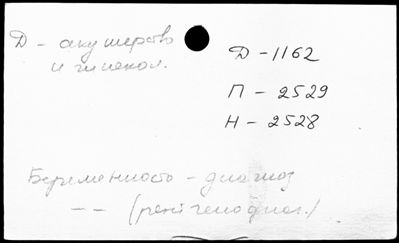 Д - акушерство
и гинекол.
Д - 1162
П - 2529
Н - 2528
Беременность - диагноз
- - (рентгенодиаг.)